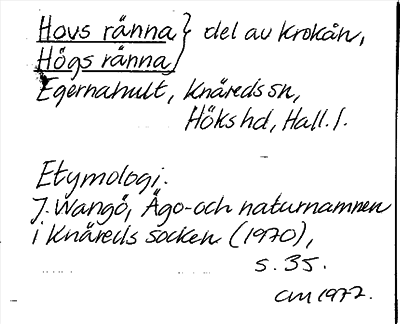 Hovs ränna } del av Krokån,
Högs ränna
Egernahult, Knäreds sn,
Höks hd, Hall. l.
Etymologi.
J. Wangö, Ägo- och naturnamnen
i Knäreds socken (1970),
s. 35.
CM 1977.